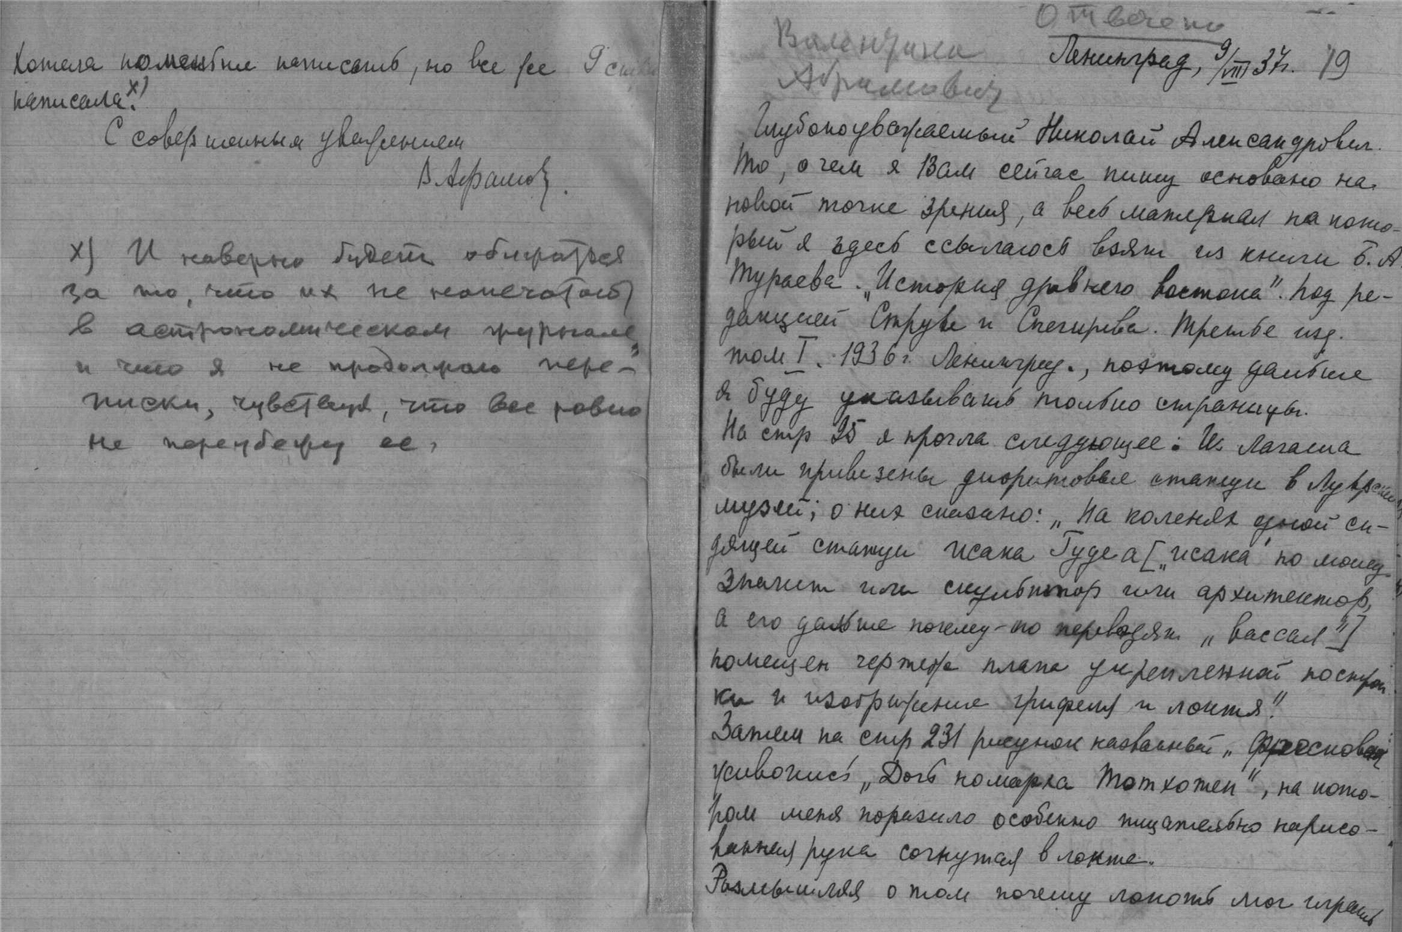 Хотела поменьше написать, но все же 9 стр
написала x)
С совершенным уважением
В. Абрамов.
x) И наверно будет обижаться
за то, что их не напечатают
в астрономическом журнале,
и что я не продолжаю пере-
писки, чувствуя, что все равно
не переубежу ее.
Отвечено
Валентина
Абрамович
Ленинград, 9/VIII 37г. 79
Глубокоуважаемый Николай Александрович.
То, о чем я Вам сейчас пишу основано на
новой точке зрения, а весь материал на кото-
рый я здесь ссылаюсь взят из книги Б. А.
Тураева. „История древнего востока". под ре-
дакцией Струве и Снегирева. Третье изд.
том I. 1936 г. Ленинград., поэтому дальше
я буду указывать только страницы.
На стр 25 я прочла следующее: Из Лагаша
были привезены диоритовые статуи в Луврский
музей; о них сказано: „На коленях одной си-
дящей статуи исака Гудеа [„исака" по моему
значит или скульптор или архитектор,
а его дальше почему-то переводят „вассал"]
помещен чертеж плана укрепленной построй
ки и изображение грифеля и локтя".
Затем на стр 231 рисунок названный „Фресковая
живопись „Дочь номарха Тотхотеп", на кото-
ром меня поразило особенно тщательно нарисо-
ванная рука согнутая в локте.
Размышляя о том почему локоть мог играть